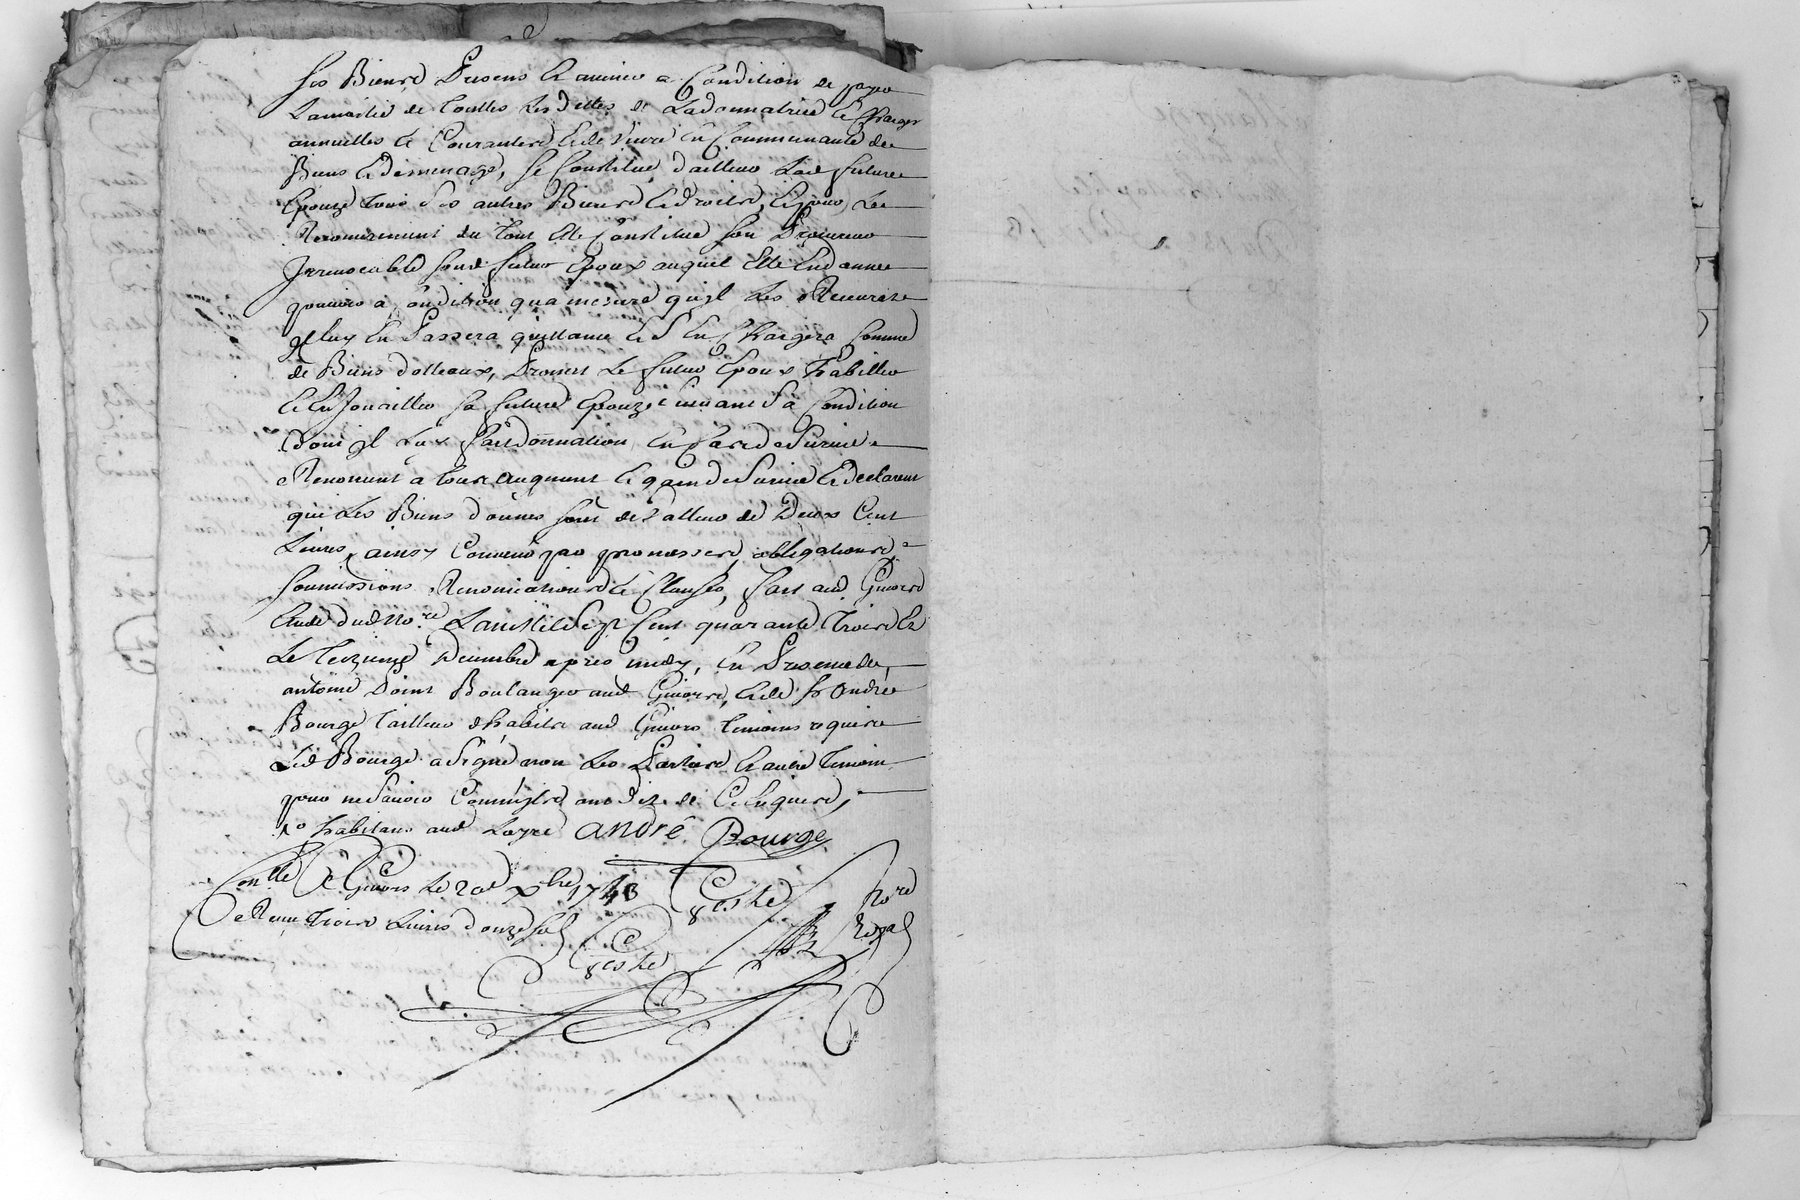 ses Biens Presens et avenir a Condition de payer
La moitié de touttes Les dettes de La donnatrice et charges
annuelles et Courantes et de vivre en Communauté de
Biens et demenage, se Constitue d'ailleur Lad. future
Epouze tous ses autres Biens et droits, et pour Le
Recouvrement du tout elle Constitue son Procureur
Irrevocable sond. futur Epoux auquel elle en donne
pouvoir a condition qua mesure qu'il Les Recevra
il luy en Passera quittance et s'en chargera Comme
de Biens dotteaux, Promet Le futur Epoux habiller
et En Joailler sa future Epouze suivant sa Condition
dont il Luy fait donnation en Cas de Survie
Renoncent a tous augment et gain de Survie et declarent
que Les Biens donnés sont de valleur de Deux Cent
Livres, ainsy Convenu par promesses, obligations,
soumissions, Renonciations et Clauses, fait aud. Givors
Etude dud. No.re L'an mil sept Cent quarante Trois et
Le treizieme decembre apres midy, En Presence de
antoine Boulanger aud. Givors, et de sr. André
Bourge tailleur d'habits aud. Givors temoins requis
Led. Bourge a signé non Les Parties et autre temoin
pour ne sçavoir Comme ils ont dit de Ce Enquis,
habitans aud. andré Bourge
Con.llé A Givors Le 20e xbre 1743
Receu trois Livres douze sols
Coste
Coste No.re Royal